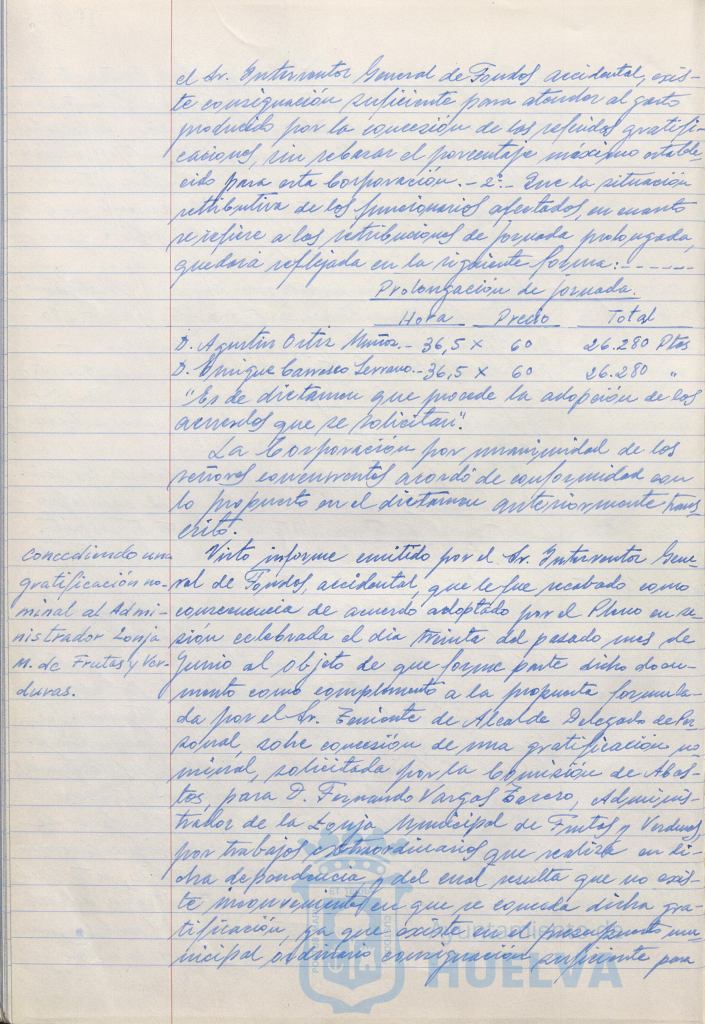 el Sr. Interventor General de Fondos accidental, exis-
te consignación suficiente para atender al gasto
producido por la concesión de las referidas gratifi-
caciones, sin rebasar el porcentaje máximo estable-
cido para esta Corporación.- 2º.- Que la situación
retributiva de los funcionarios afectados, en cuanto
se refiere a las retribuciones de jornada prolongada,
quedará reflejada en la siguiente forma:-------
Prolongación de jornada.
Hora Precio Total
D. Agustín Ortiz Muñoz.- 36,5 x 60 26.280 Ptas
D. Enrique Carrasco Serrano.- 36,5 x 60 26.280 "
"Es de dictamen que procede la adopción de los
acuerdos que se solicitan".
La Corporación por unanimidad de los
señores concurrentes acordó de conformidad con
lo propuesto en el dictamen anteriormente trans-
crito.
concediendo una
gratificación no-
minal al Admi-
nistrador Lonja
M. de Frutas y Ver-
duras.
Visto informe emitido por el Sr. Interventor Gene-
ral de Fondos, accidental, que le fue recabado como
consecuencia de acuerdo adoptado por el Pleno en se-
sión celebrada el día treinta del pasado mes de
Junio al objeto de que forme parte dicho docu-
mento como complemento a la propuesta formula-
da por el Sr. Teniente de Alcalde Delegado de Per-
sonal, sobre concesión de una gratificación no
minal, solicitada por la Comisión de Abas-
tos, para D. Fernando Vargas , Adminis-
trador de la Lonja Municipal de Frutas y Verduras,
por trabajos extraordinarios que realiza en di-
cha dependencia y del cual resulta que no exis-
te inconveniente en que se conceda dicha gra-
tificación, ya que existe en el presupuesto mu-
nicipal ordinario consignación suficiente para
HUELVA